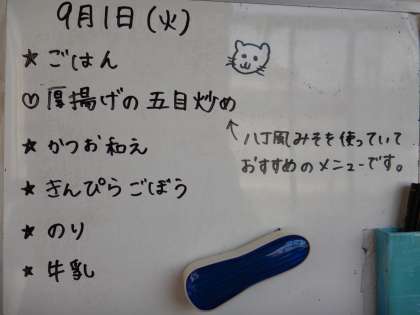 9月1日(火)
★ごはん
♡厚揚げの五目炒め
★かつお和え
★きんぴらごぼう
★のり
★牛乳
↑八丁風みそを使っていて
おすすめのメニューです。